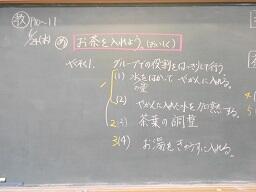 教 P10〜11
お茶を入れよう (おいしく)
1. グループでの役割をはっきりして行う
(1) 水をはかって やかんに入れる。
の量
(2) やかんに入れた水を加熱する。
2 (3) 茶葉の調整
3 (4) お湯をきゅうすに入れる。